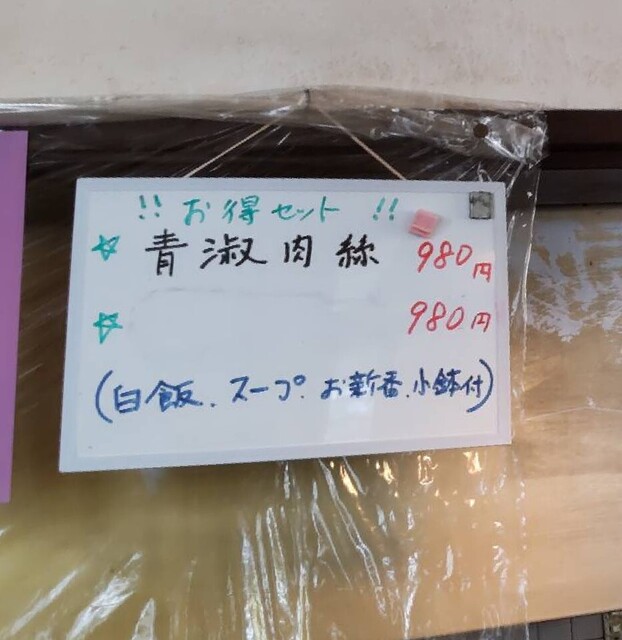 !! お得セット !!
☆ 青淑肉絲 980円
☆ 980円
(白飯、スープ、お新香、小鉢付)